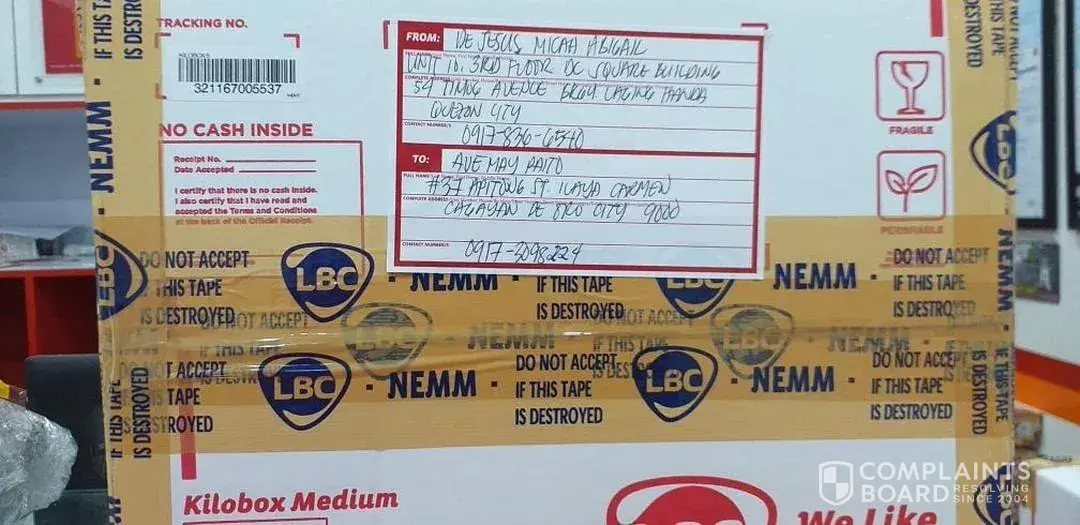 TRACKING NO.
KILOBOXS
321167005537
NO CASH INSIDE
Receipt No.
Date Accepted
I certify that there is no cash inside.
I also certify that I have read and
accepted the Terms and Conditions
at the back of the Official Receipt.
FROM: DE JESUS MICAH ABIGAIL
UNIT 10. 3RD FLOOR DC SQUARE BUILDING
COMPLETE ADDRESS
54 TIMOG AVENUE BRGY LAGING HANDA
QUEZON CITY
CONTACT NUMBER/S
0917-836-6540
TO: AVE MAY PAITO
#37 APITONG ST. ILAYA CARMEN
COMPLETE ADDRESS
CAGAYAN DE ORO CITY 9000
CONTACT NUMBER/S
0917-3098224
FRAGILE
PERISHABLE
IF THIS TAPE
IS DESTROYED
NEMM
LBC
IF THIS TAPE
IS DESTROYED
LBC
NEMM
DO NOT ACCEPT
IF THIS TAPE
IS DESTROYED
LBC
· NEMM ·
IF THIS TAPE
IS DESTROYED
LBC
NEMM ·
DO NOT ACCEPT
IF THIS TAPE
IS DESTROYED
DO NOT ACCEPT
IF THIS TAPE
LBC
NEMM
DO NOT ACCEPT
IF THIS TAPE
LBC
NEMM
T ACCEPT
TAPE
STROYED
LBC
· NEMM ·
DO NOT ACCEPT
IF THIS TAPE
IS DESTROYED
LBC
· NEMM ·
DO NOT ACCEPT
IF THIS TAPE
IS DESTROYED
Kilobox Medium
LBC
We Like
COMPLAINTS
BOARD RESOLVING
SINCE 2004